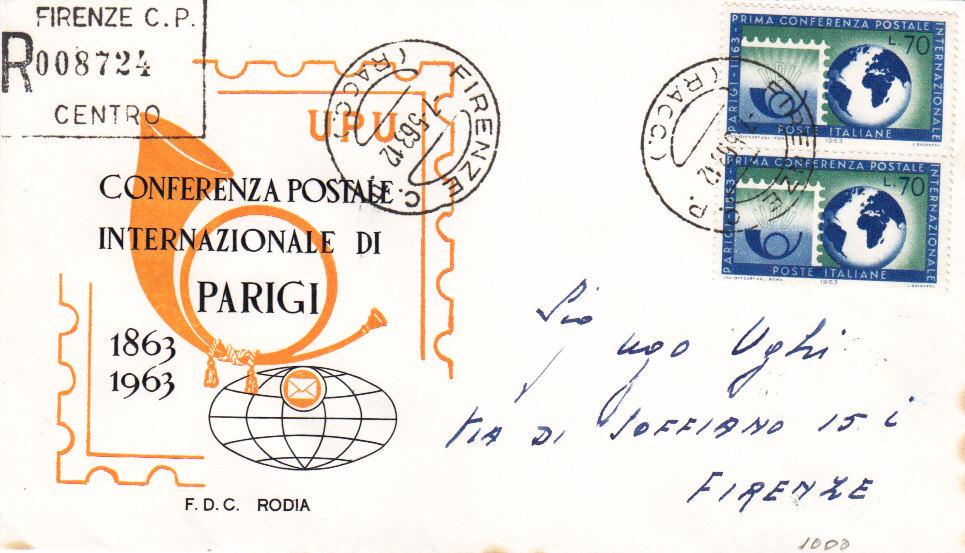 FIRENZE C.P.
R 008724
CENTRO
UPU
CONFERENZA POSTALE
INTERNAZIONALE DI
PARIGI
1863
1963
F.D.C. RODIA
FIRENZE C.P.
(RACC.)
7.5.63.12
FIRENZE C.P.
(RACC.)
PRIMA CONFERENZA POSTALE
INTERNAZIONALE
PARIGI-1863-1963
L.70
POSTE ITALIANE
1963
PRIMA CONFERENZA POSTALE
INTERNAZIONALE
PARIGI-1863-1963
L.70
POSTE ITALIANE
1963
Sig
Ugo Ughi
VIA DI SOFFIANO 15 i
FIRENZE
1000